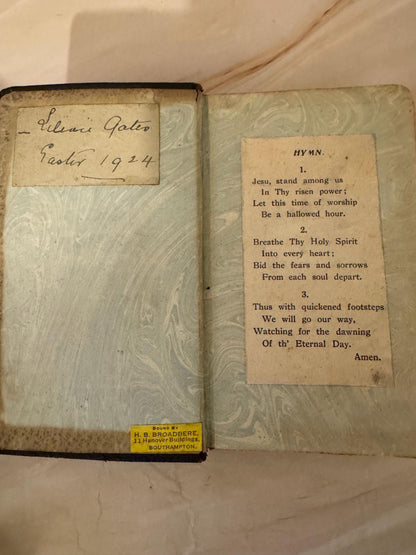 Lilian Gates
Easter 1924
HYMN.
1.
Jesu, stand among us
In Thy risen power;
Let this time of worship
Be a hallowed hour.
2.
Breathe Thy Holy Spirit
Into every heart;
Bid the fears and sorrows
From each soul depart.
3.
Thus with quickened footsteps
We will go our way,
Watching for the dawning
Of th' Eternal Day.
Amen.
BOUND BY
H. B. BROADBERE,
11 Hanover Buildings,
SOUTHAMPTON.